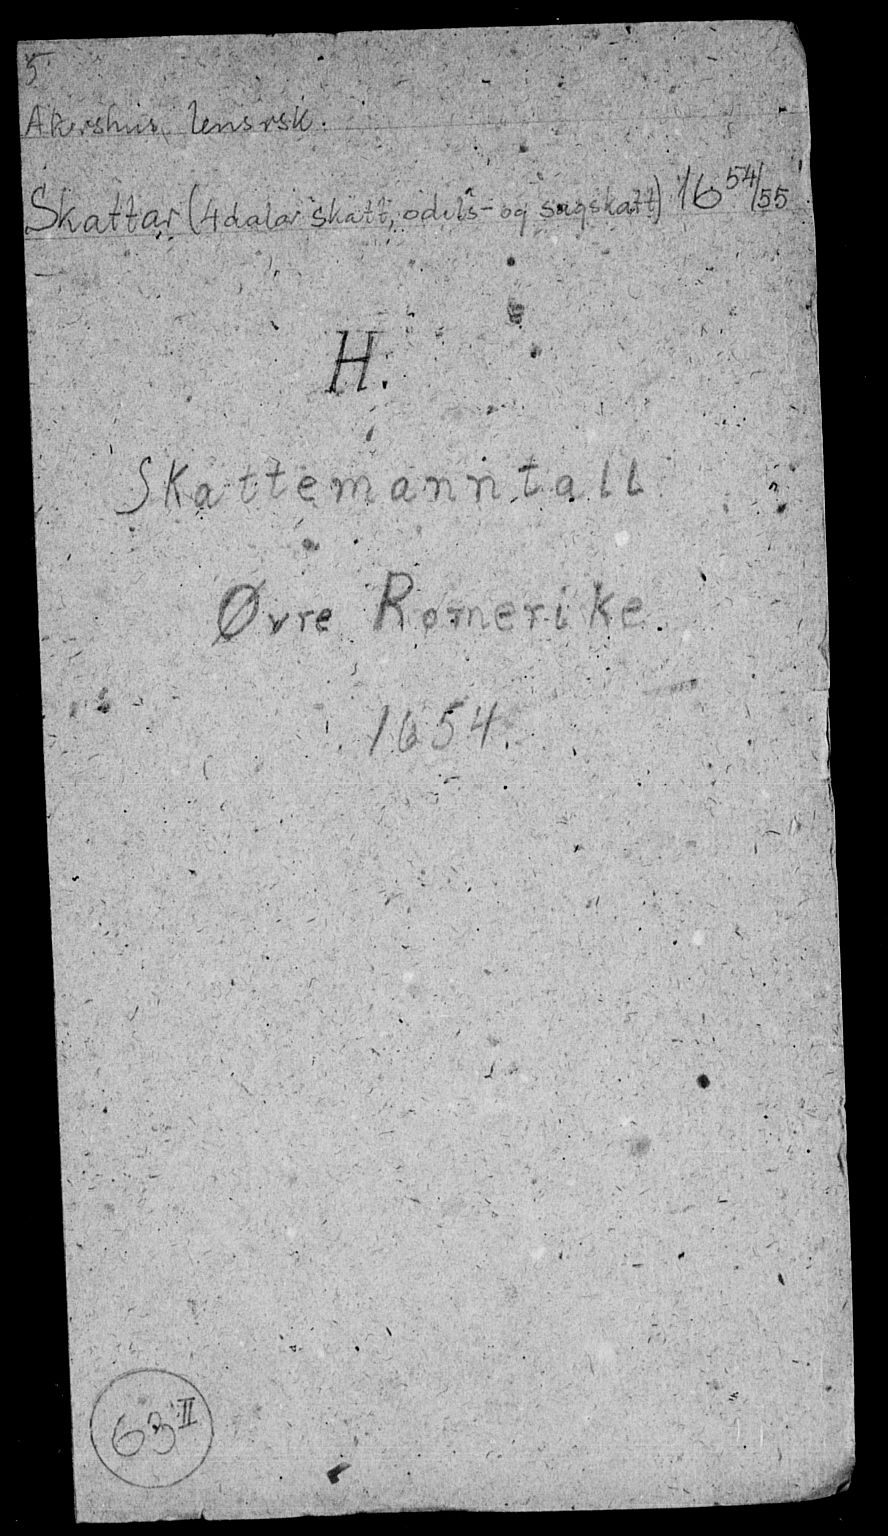 5
Akershus lensrsk.
Skattar (4 dalar skatt, odels- og sagskatt) 1654/55
H.
Skattemanntall
Øvre Romerike.
1654.
63 II